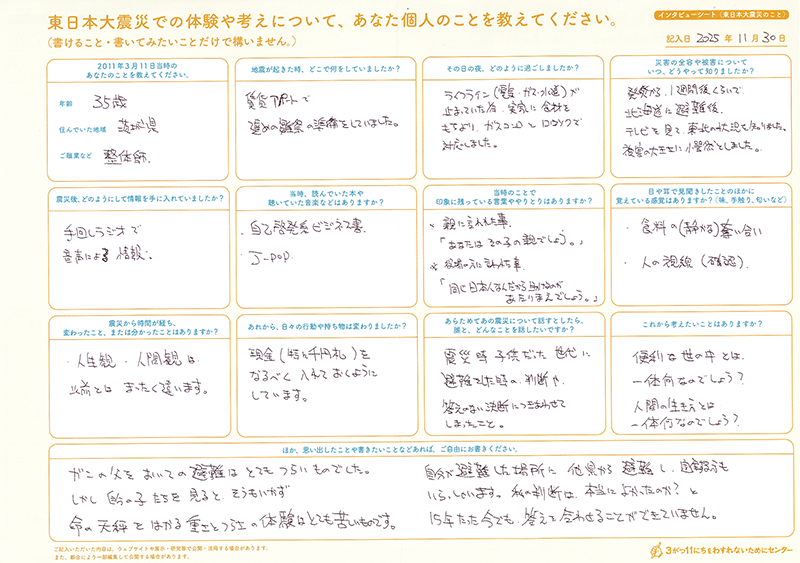 東日本大震災での体験や考えについて、あなた個人のことを教えてください。
（書けること・書いてみたいことだけで構いません。）
インタビューシート（東日本大震災のこと）
記入日 2025 年 11 月 30 日
2011年3月11日当時の
あなたのことを教えてください。
年齢 35歳
住んでいた地域 茨城県
ご職業など 整体師.
地震が起きた時、どこで何をしていましたか？
賃貸アパートで
遅めの離乳の準備をしていました。
その日の夜、どのように過ごしましたか？
ライフライン（電気・ガス・水道）が
止まっていた為、実家に食材を
もちより、ガスコンロとロウソクで
対応しました。
災害の全容や被害について
いつ、どうやって知りましたか？
発災から、1週間後くらいで、
北海道に避難後、
テレビを見て、東北の状況を知りました。
被害の大きさに小愕然としました。
震災後、どのようにして情報を手に入れていましたか？
手回しラジオで
音声による情報.
当時、読んでいた本や
聴いていた音楽などはありますか？
・自己啓発系ビジネス書.
・J-POP.
当時のことで
印象に残っている言葉ややりとりはありますか？
※ 親に言われた事.
「あなたはその子の親でしょう。」
※ 役場の人に言われた事.
「同じ日本人なんだから助けるのが
あたりまえでしょう。」
目や耳で見聞きしたことのほかに
覚えている感覚はありますか？（味、手触り、匂いなど）
・食料の（静かな）奪い合い
・人の視線（確認）.
震災から時間が経ち、
変わったこと、または分かったことはありますか？
・人生観・人間観は、
以前とはまったく違います。
あれから、日々の行動や持ち物は変わりましたか？
現金（特に千円札）を
なるべく入れておくように
しています。
あらためてあの震災について話すとしたら、
誰と、どんなことを話したいですか？
震災時子供だった世代に
避難した時の判断や、
答えのない決断につきあわせて
しまったこと。
これから考えたいことはありますか？
便利な世の中とは、
一体何なのでしょう？
人間の生き方とは
一体何なのでしょう？
ほか、思い出したことや書きたいことなどあれば、ご自由にお書きください。
ガンの父をおいての避難はとてもつらいものでした。
しかし自分の子たちを見ると、そうもいかず
命の天秤をはかる重さとつらさの体験はとても苦いものです。
自分が避難した場所に他県から避難し、迷う方も
いらっしゃいます。私の判断は、本当によかったのか？と
15年たった今でも、答えを合わせることができていません。
ご記入いただいた内容は、ウェブサイトや展示・研究等で公開・活用する場合があります。
また、都合により一部編集して公開する場合があります。
3がつ11にちをわすれないためにセンター